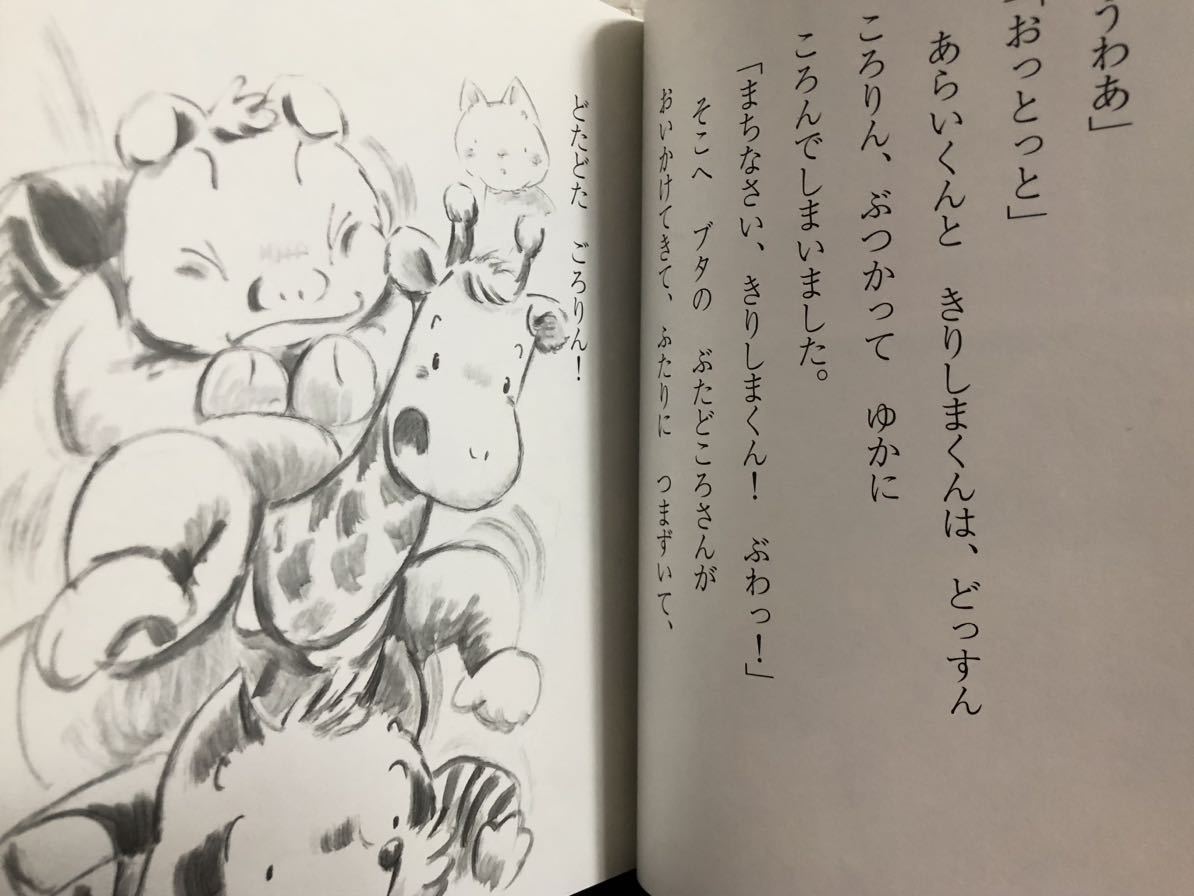 うわあ」
「おっとっと」
あらいくんと　きりしまくんは、どっすん
ころりん、ぶつかって　ゆかに
ころんでしまいました。
「まちなさい、きりしまくん！　ぶわっ！」
そこへ　ブタの　ぶたどころさんが
おいかけてきて、ふたりに　つまずいて、
どたどた　ごろりん！